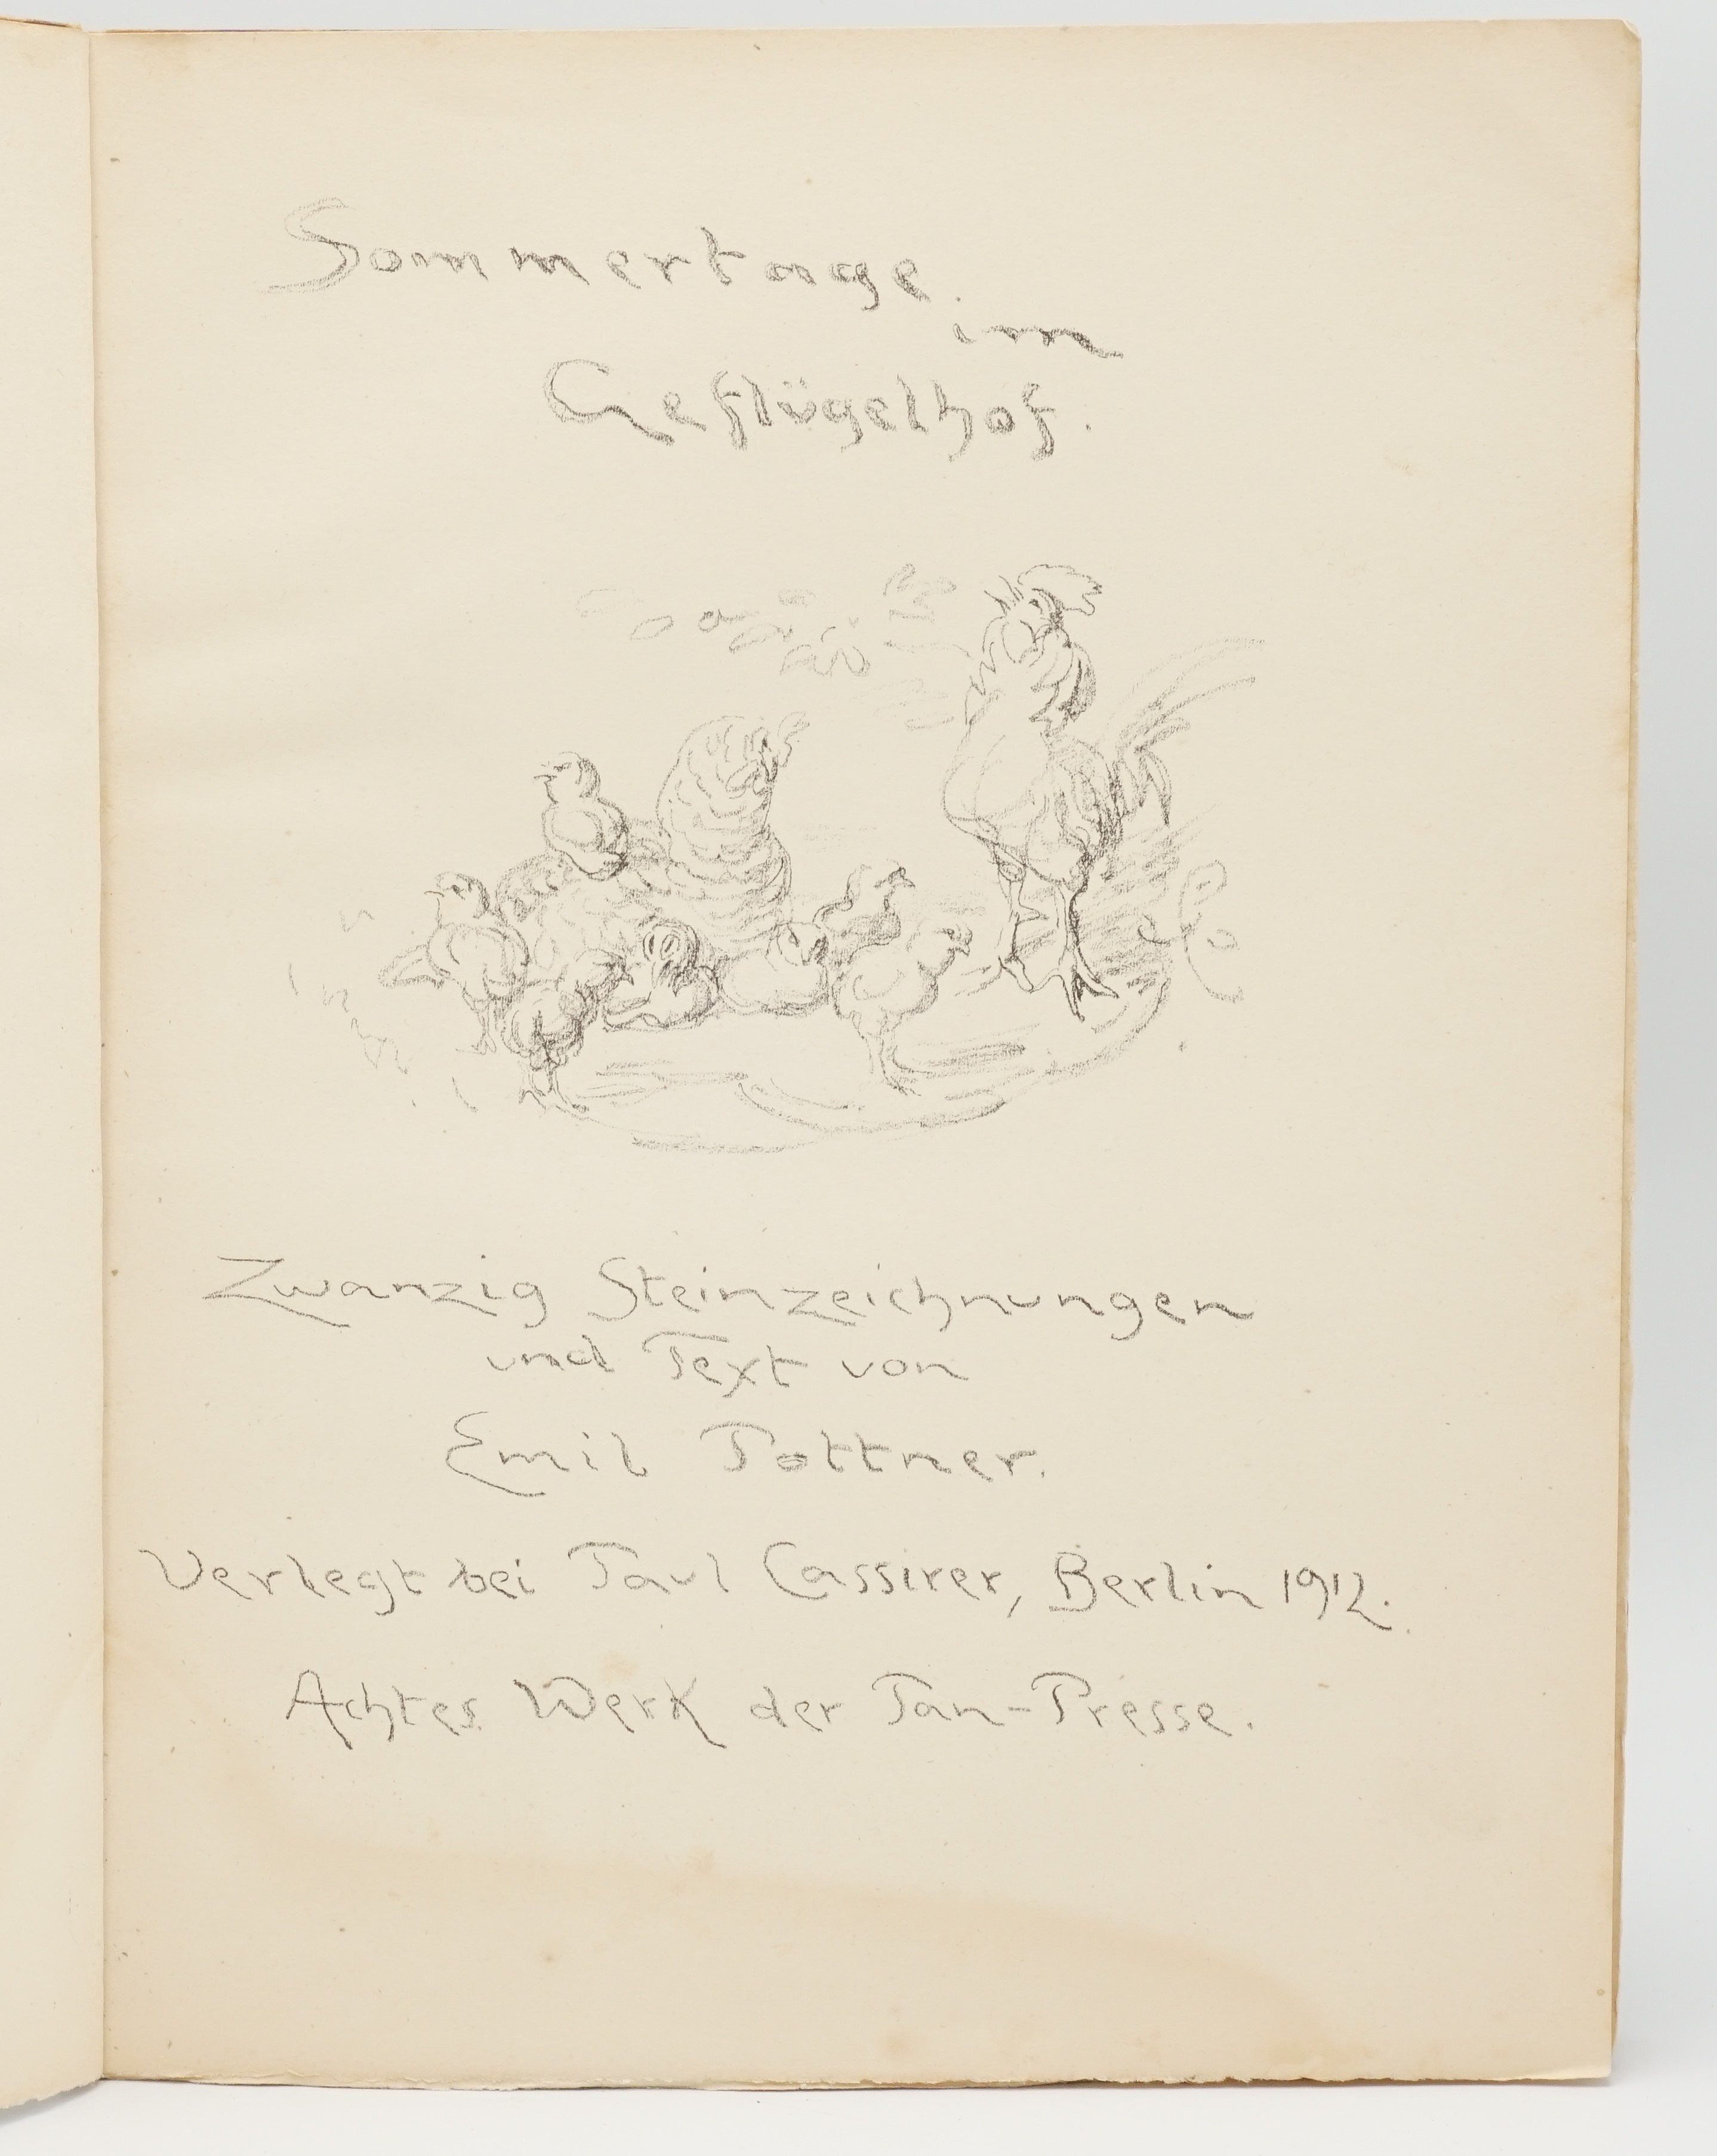 Sommertage
im
Geflügelhof.
Zwanzig Steinzeichnungen
und Text von
Emil Pottner.
Verlegt bei Paul Cassirer, Berlin 1912.
Achtes Werk der Pan-Presse.